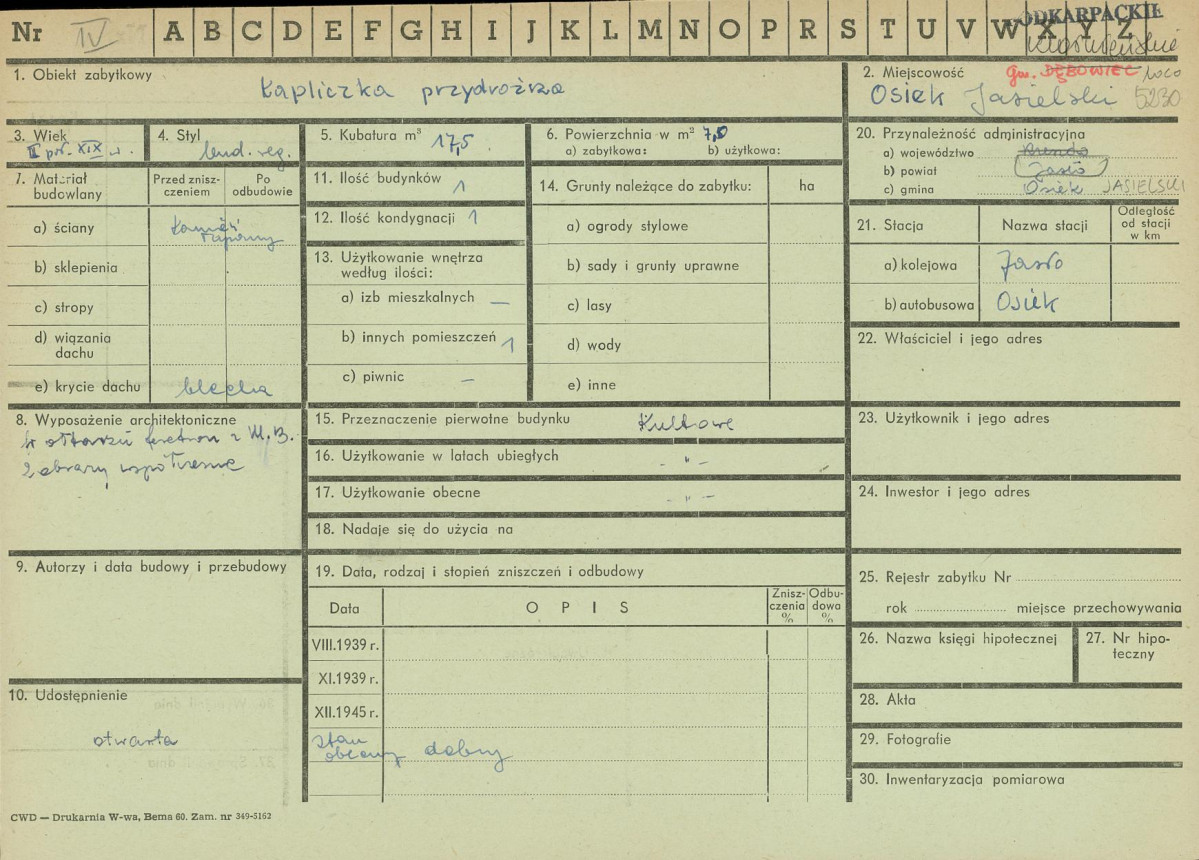 Nr IV A B C D E F G H I J K L M N O P R S T U V W X Y Z
PODKARPACKIE
Krośnieńskie
1. Obiekt zabytkowy
Kapliczka przydrożna
2. Miejscowość gm. DĘBOWIEC loco
Osiek Jasielski 5230
3. Wiek
II poł. XIX w.
4. Styl
bud. reg.
5. Kubatura m³
17,5
6. Powierzchnia w m² 7,0
a) zabytkowa: b) użytkowa:
20. Przynależność administracyjna
a) województwo
b) powiat Jasło
c) gmina Osiek JASIELSKI
7. Materiał budowlany
Przed zniszczeniem
Po odbudowie
a) ściany kamień łupany
b) sklepienia
c) stropy
d) wiązania dachu
e) krycie dachu blacha
11. Ilość budynków 1
12. Ilość kondygnacji 1
13. Użytkowanie wnętrza
według ilości:
a) izb mieszkalnych —
b) innych pomieszczeń 1
c) piwnic —
14. Grunty należące do zabytku: ha
a) ogrody stylowe
b) sady i grunty uprawne
c) lasy
d) wody
e) inne
21. Stacja
Nazwa stacji
Odległość
od stacji
w km
a) kolejowa Jasło
b) autobusowa Osiek
22. Właściciel i jego adres
8. Wyposażenie architektoniczne
W ołtarzu feretron z M.B.
2 obrazy współczesne
15. Przeznaczenie pierwotne budynku Kultowe
16. Użytkowanie w latach ubiegłych - " -
17. Użytkowanie obecne - " -
18. Nadaje się do użycia na
23. Użytkownik i jego adres
24. Inwestor i jego adres
9. Autorzy i data budowy i przebudowy
19. Data, rodzaj i stopień zniszczeń i odbudowy
Data
OPIS
Zniszczenia %
Odbudowa %
VIII.1939 r.
XI.1939 r.
XII.1945 r.
stan obecny dobry
25. Rejestr zabytku Nr
rok miejsce przechowywania
26. Nazwa księgi hipotecznej
27. Nr hipoteczny
10. Udostępnienie
otwarta
28. Akta
29. Fotografie
30. Inwentaryzacja pomiarowa
CWD — Drukarnia W-wa, Bema 60. Zam. nr 349-5162